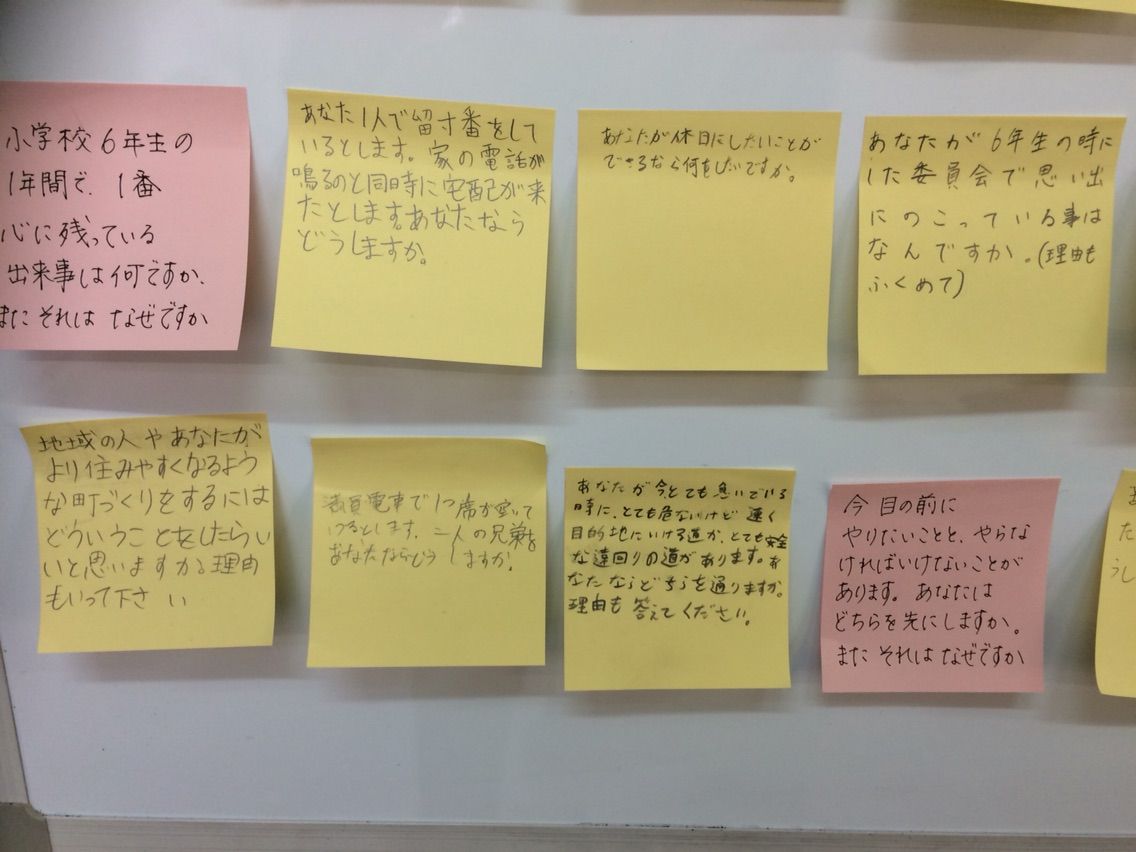 小学校6年生の
1年間で、1番
心に残っている
出来事は何ですか、
またそれは なぜですか
あなた1人で留守番をして
いるとします。家の電話が
鳴るのと同時に宅配が来
たとします。あなたなら
どうしますか。
あなたが休日にしたいことが
できるなら何をしたいですか。
あなたが6年生の時に
した委員会で思い出
にのこっている事は
なんですか。(理由も
ふくめて)
地域の人やあなたが
より住みやすくなるよう
な町づくりをするには
どういうことをしたらい
いと思いますか。理由
もいって下さい
満員電車で1つ席が空いて
いるとします。二人の兄弟を
あなたならどうしますか?
あなたが今とても急いでいる
時に、とても危ないけど速く
目的地にいける道か、とても安全
な遠回りの道があります。あ
なたならどちらを通りますか。
理由も答えてください。
今目の前に
やりたいことと、やらな
ければいけないことが
あります。あなたは
どちらを先にしますか。
またそれは なぜですか